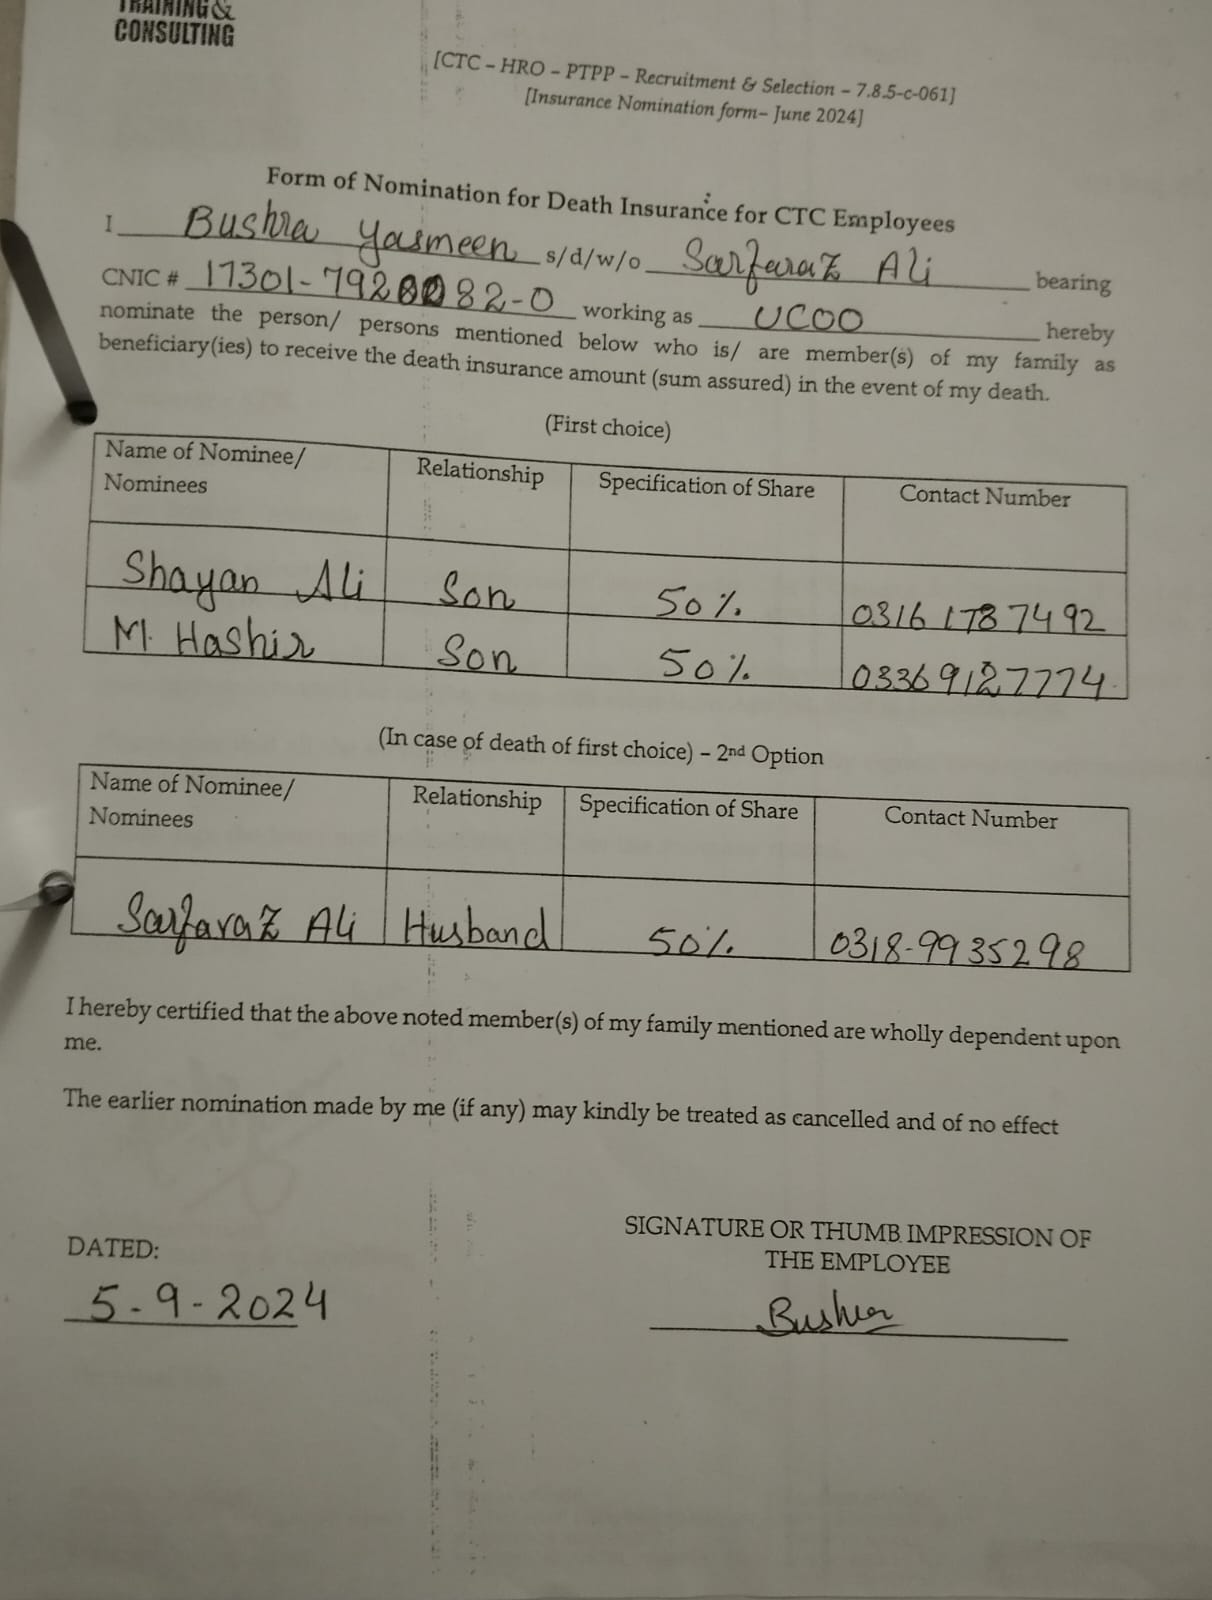 TRAINING &
CONSULTING
[CTC – HRO – PTPP – Recruitment & Selection – 7.8.5-c-061]
[Insurance Nomination form– June 2024]
Form of Nomination for Death Insurance for CTC Employees
I Bushra Yasmeen s/d/w/o Sarfaraz Ali bearing
CNIC # 17301-7920082-0 working as UCOO hereby
nominate the person/ persons mentioned below who is/ are member(s) of my family as
beneficiary(ies) to receive the death insurance amount (sum assured) in the event of my death.
(First choice)
Name of Nominee/ Nominees Relationship Specification of Share Contact Number
Shayan Ali Son 50% 0316 1787492
M. Hashir Son 50% 03369127774
(In case of death of first choice) – 2nd Option
Name of Nominee/ Nominees Relationship Specification of Share Contact Number
Sarfaraz Ali Husband 50% 0318-9935298
I hereby certified that the above noted member(s) of my family mentioned are wholly dependent upon
me.
The earlier nomination made by me (if any) may kindly be treated as cancelled and of no effect
DATED:
5-9-2024
SIGNATURE OR THUMB IMPRESSION OF
THE EMPLOYEE
Bushra